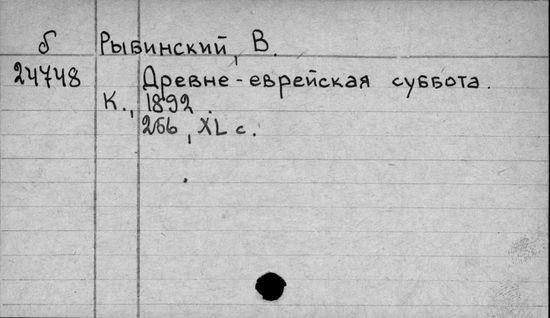 б Рыбинский, В.
24748 Древне-еврейская суббота.
К., 1892.
266, XL с.